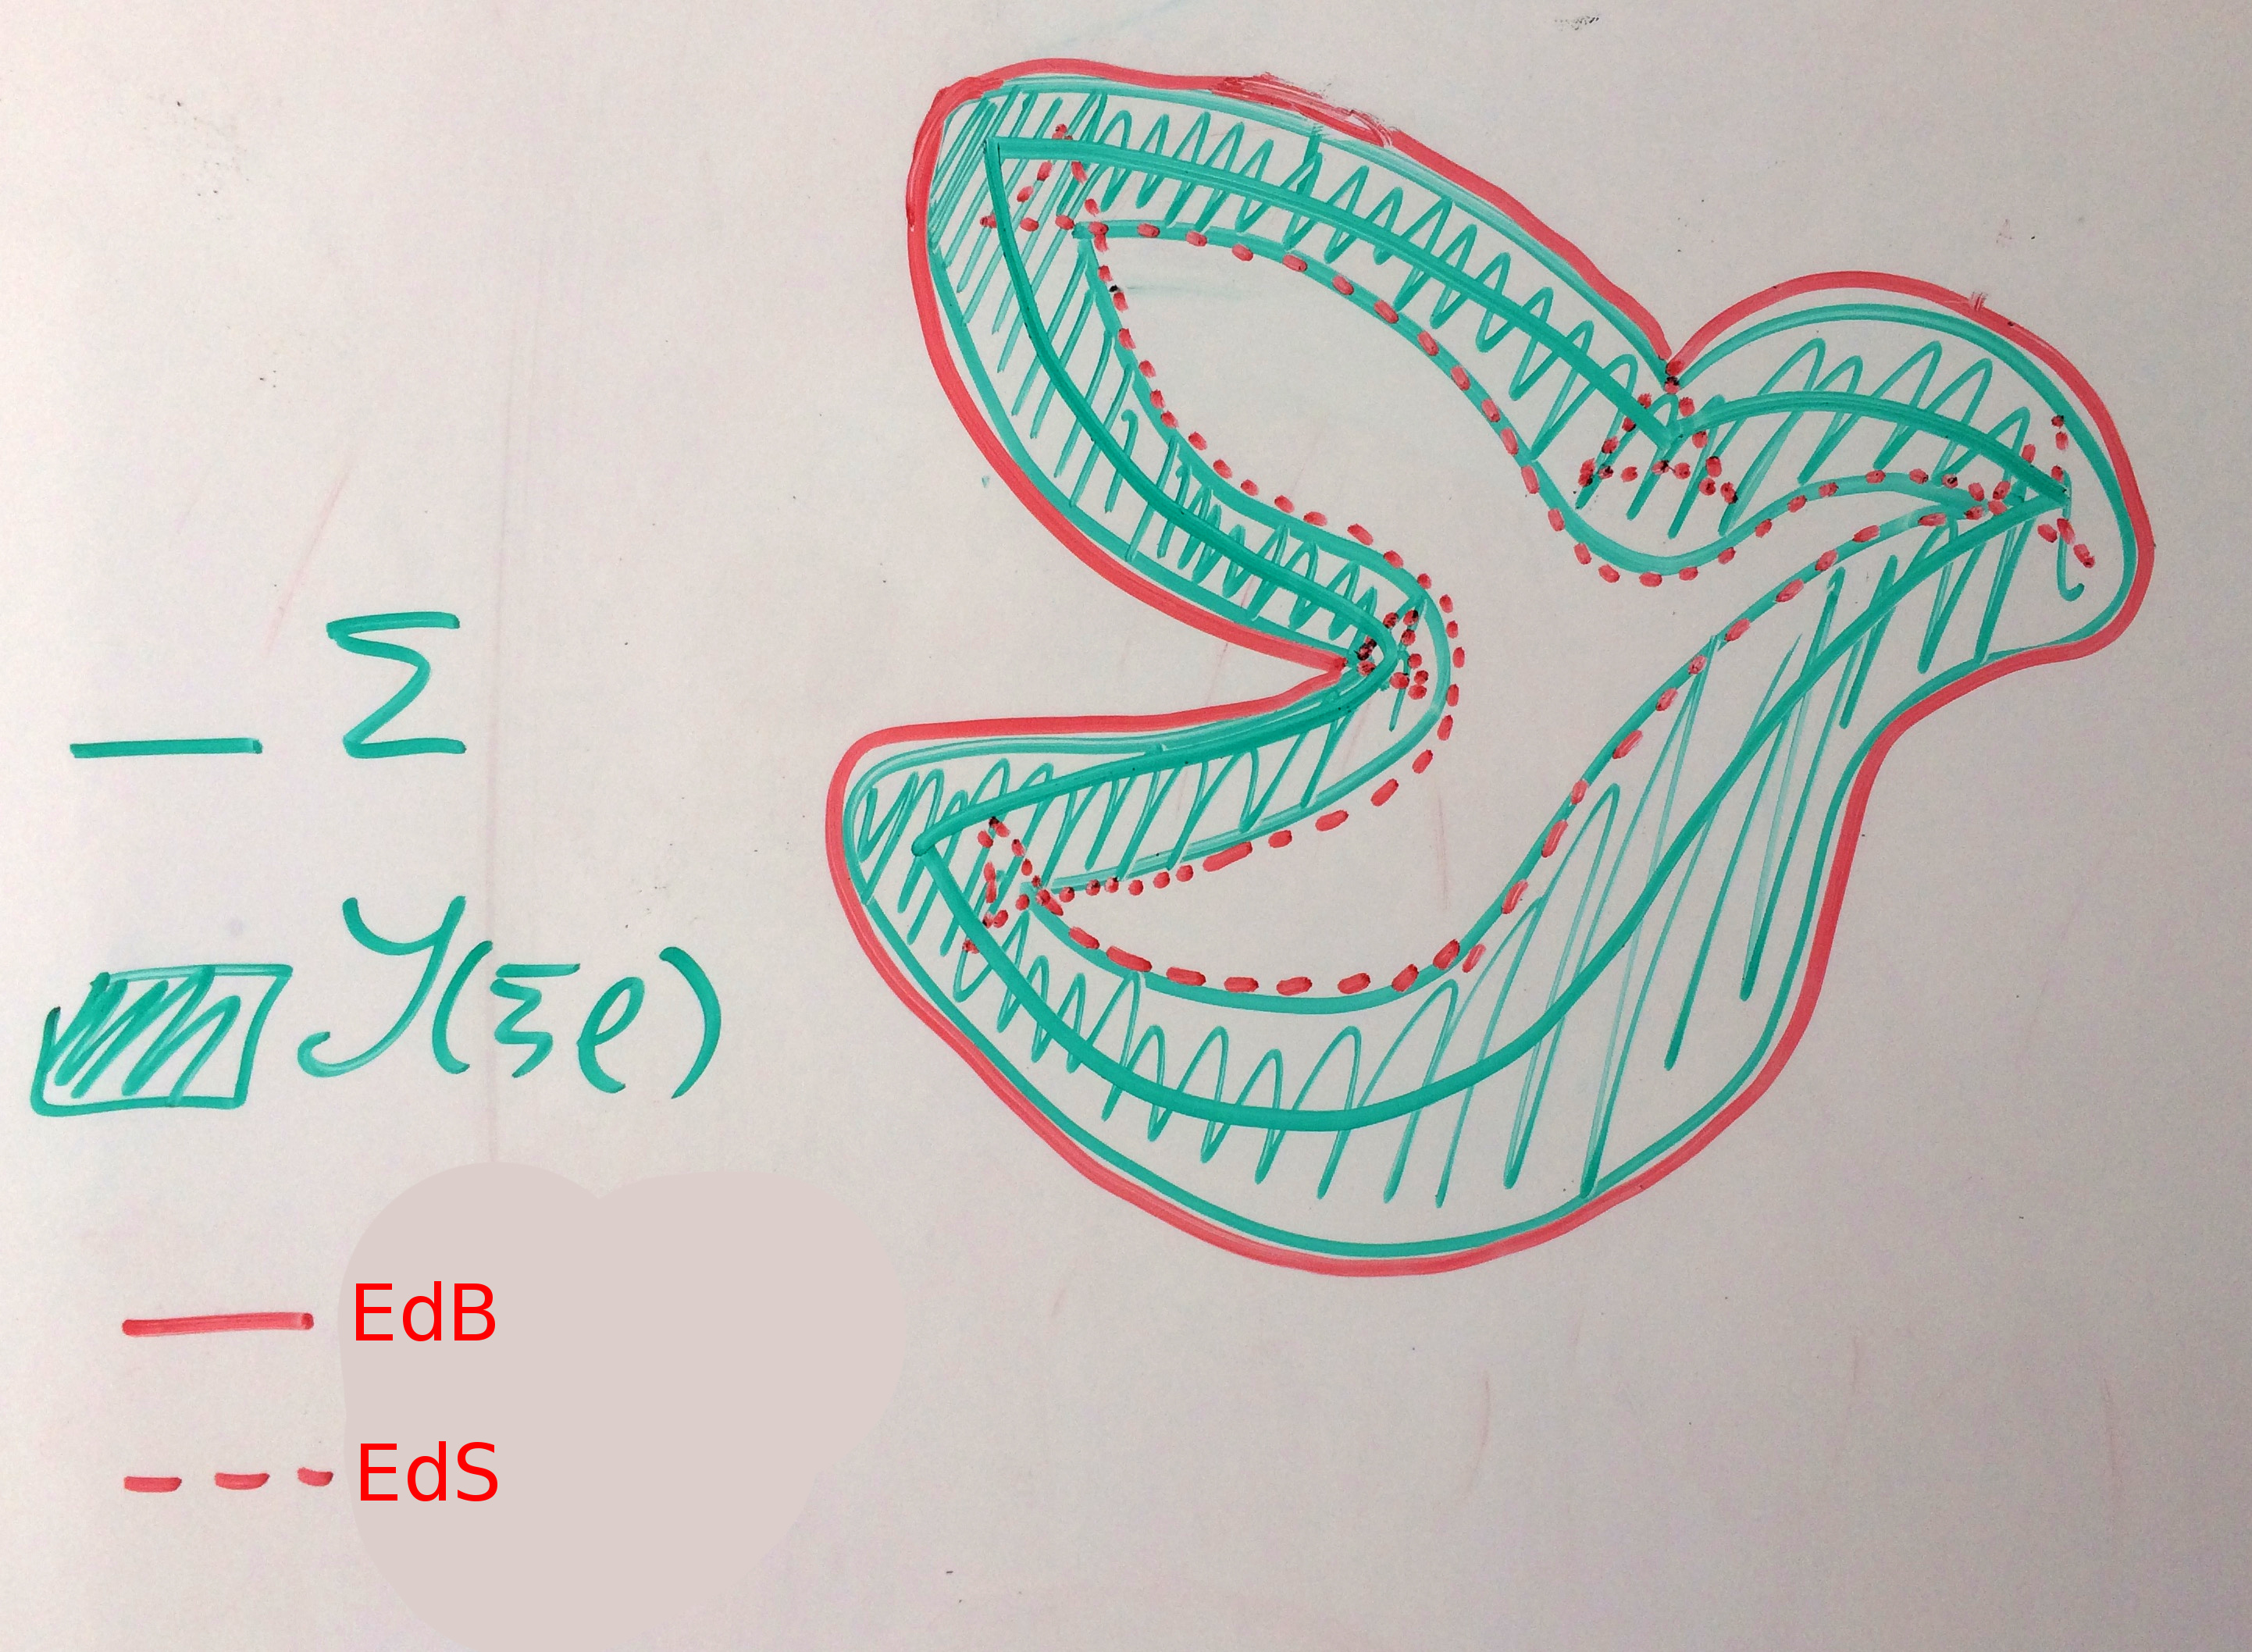 Σ
𝒴(Σρ)
EdB
EdS